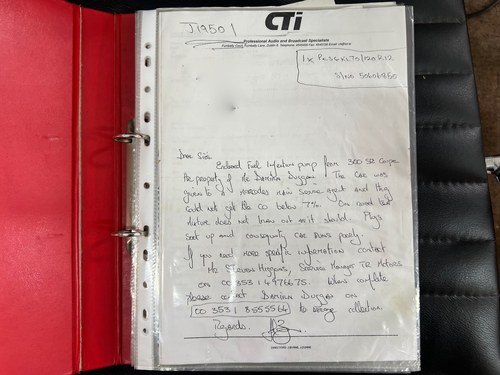 J19501
CTi
Professional Audio and Broadcast Specialists
1 x
S/NO
Dear Sir,
Enclosed Fuel Injection pump from 300 SL Coupe
the property of Mr Damien Duggan. The Car was
given to a Mercedes main Service agent and they
Could not get the CO below 7%. On road test
mixture does not lean out as it should. Plugs
Soot up and consequently Car Runs poorly.
If you need more specific information contact
Mr Higgins, Service Manager Motors
on 00 353 1 4976675. When complete
please contact Damien Duggan on
00 353 1 8555564 to arrange collection.
Regards.